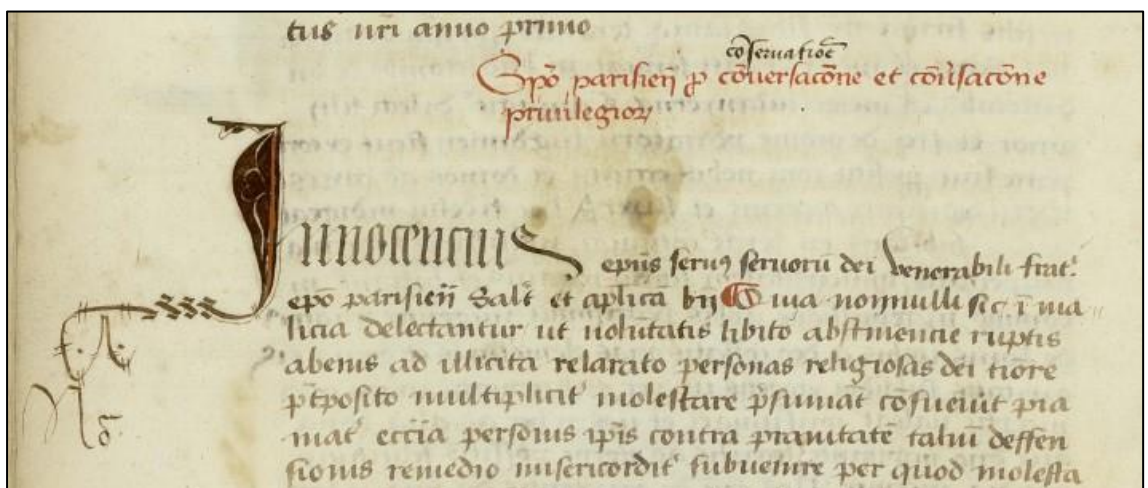 tus nri anno primo
coservatioe
Epo parisien p coversacone et cousacone
privilegior
Innocencius
epus servus servoru dei venerabili frat
epo parisien Salt et aplica bn Quia nonnulli sic i ma
licia delectantur ut volutatis libito abstinencie ruptis
abenis ad illicita relaxato personas religiosas dei tiore
ptposito multiplicit molestare psumat cosuevit pia
mat eccia personis ipis contra pravitate taliu deffen
sionis remedio misericordit subvenire per quod molesta